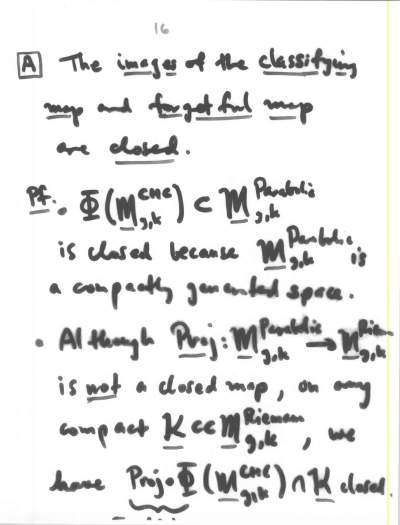 16
A The images of the classifying
map and forgetful map
are closed.
Pf: • Φ(M_{g,k}^{CMC}) ⊂ M_{g,k}^{Parabolic}
is closed because M_{g,k}^{Parabolic} is
a compactly generated space.
• Although Proj: M_{g,k}^{Parabolic} → M_{g,k}^{Riem}
is not a closed map, on any
compact K ⊂⊂ M_{g,k}^{Riemann}, we
have Proj∘Φ(M_{g,k}^{CMC}) ∩ K closed.